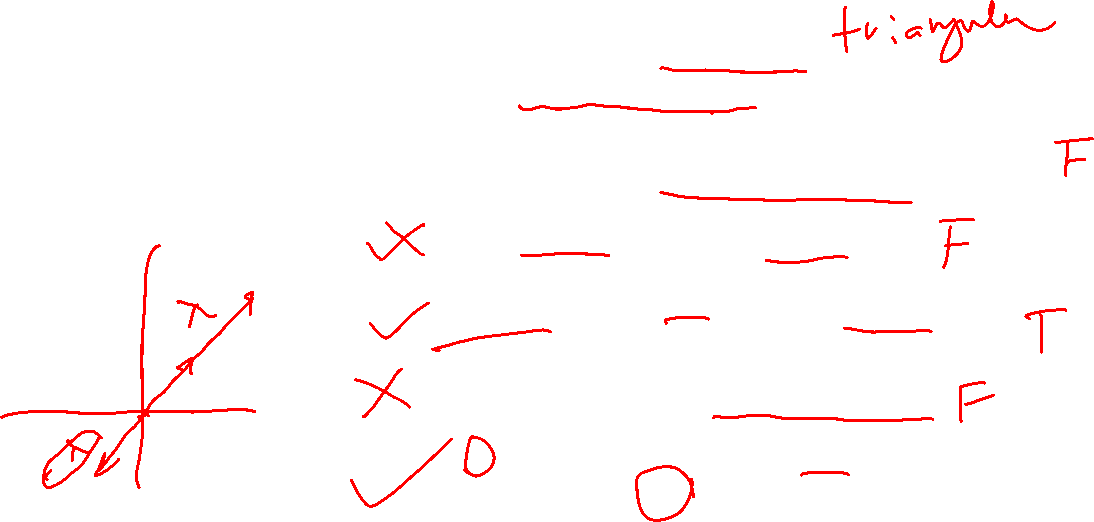 triangular
F
F
T
F
O
O